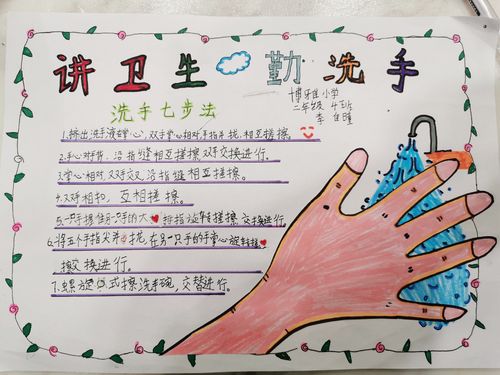 讲卫生 勤洗手
博雅小学
二年级 4班
李
洗手七步法
1.挤出洗手液在掌心,双手掌心相对,手指并拢,相互搓擦。
2.手心对手背,沿指缝相互搓擦双手交换进行。
3.掌心相对,双手交叉,沿指缝相互搓擦。
4.双手相扣,互相搓擦。
5.一只手握住另一只手的大拇指旋转搓擦交换进行
6.将五个手指尖并拢,在另一只手的手掌心旋转搓
擦交换进行。
7.螺旋式擦洗手腕,交替进行。